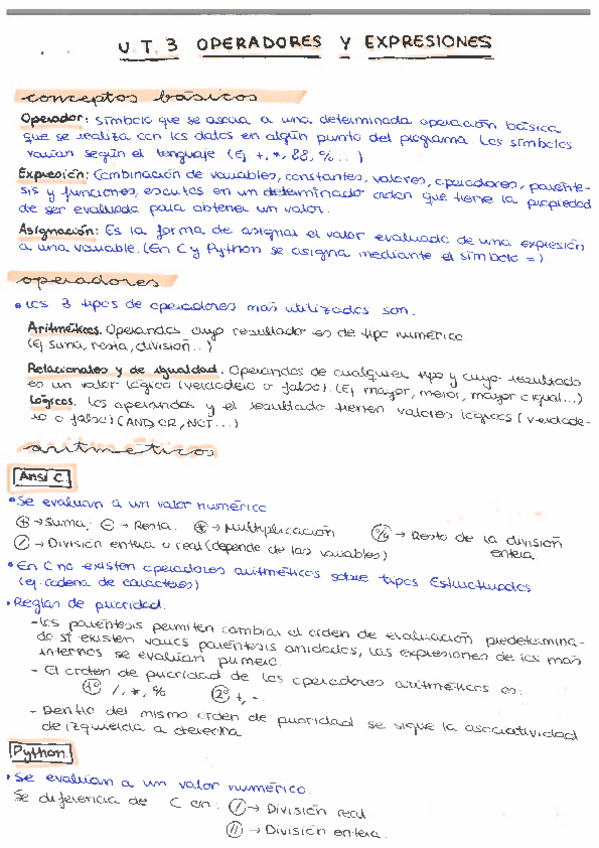 U.T. 3 OPERADORES Y EXPRESIONES
conceptos básicos
Operador: símbolo que se asocia a una determinada operación básica
que se realiza con los datos en algún punto del programa. Los símbolos
varían según el lenguaje (Ej +, *, &&, %...)
Expresión: Combinación de variables, constantes, valores, operadores, parénte-
sis y funciones, escritas en un determinado orden que tiene la propiedad
de ser evaluada para obtener un valor.
Asignación: Es la forma de asignar el valor evaluado de una expresión
a una variable. (En C y Python se asigna mediante el símbolo =).
operadores
• Los 3 tipos de operadores más utilizados son.
Aritméticos. Operandos cuyo resultado es de tipo numérico
(Ej suma, resta, división...)
Relacionales y de igualdad. Operandos de cualquier tipo y cuyo resultado
es un valor lógico (verdadero o falso). (Ej mayor, menor, mayor o igual...)
Lógicos. Los operandos y el resultado tienen valores lógicos (verdade-
ro o falso) (AND, OR, NOT...)
aritméticos
Ansi C
• Se evalúan a un valor numérico
+ → Suma. - → Resta. * → Multiplicación % → Resto de la división
entera
/ → División entera o real (depende de las variables)
• En C no existen operadores aritméticos sobre tipos Estructurados
(ej. cadena de caracteres)
• Reglas de prioridad.
- Los paréntesis permiten cambiar el orden de evaluación predetermina-
do si existen varios paréntesis anidados, las expresiones de los más
internos se evalúan primero.
- El orden de prioridad de los operadores aritméticos es:
1º /, *, % 2º +, -.
- Dentro del mismo orden de prioridad se sigue la asociatividad
de izquierda a derecha
Python.
• Se evalúan a un valor numérico.
Se diferencia de C en: / → División real
// → División entera.